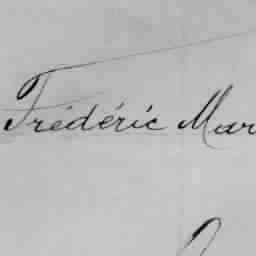 Frédéric Mar